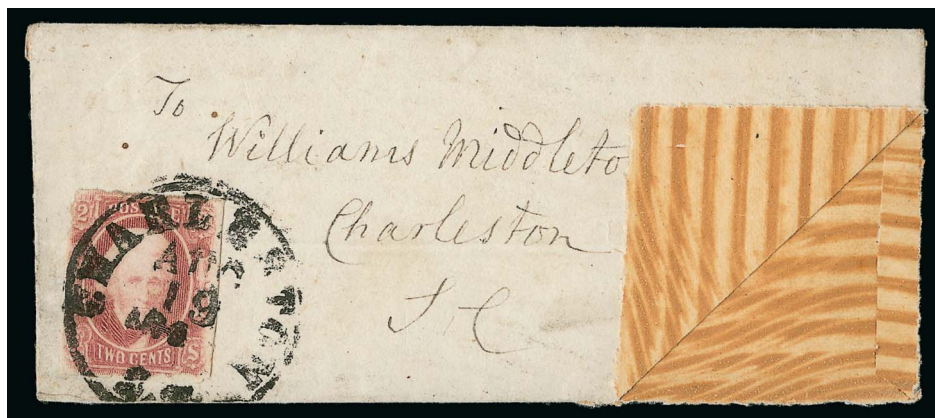 To
Williams Middleto
Charleston
S. C
TWO CENTS
CHARLESTON